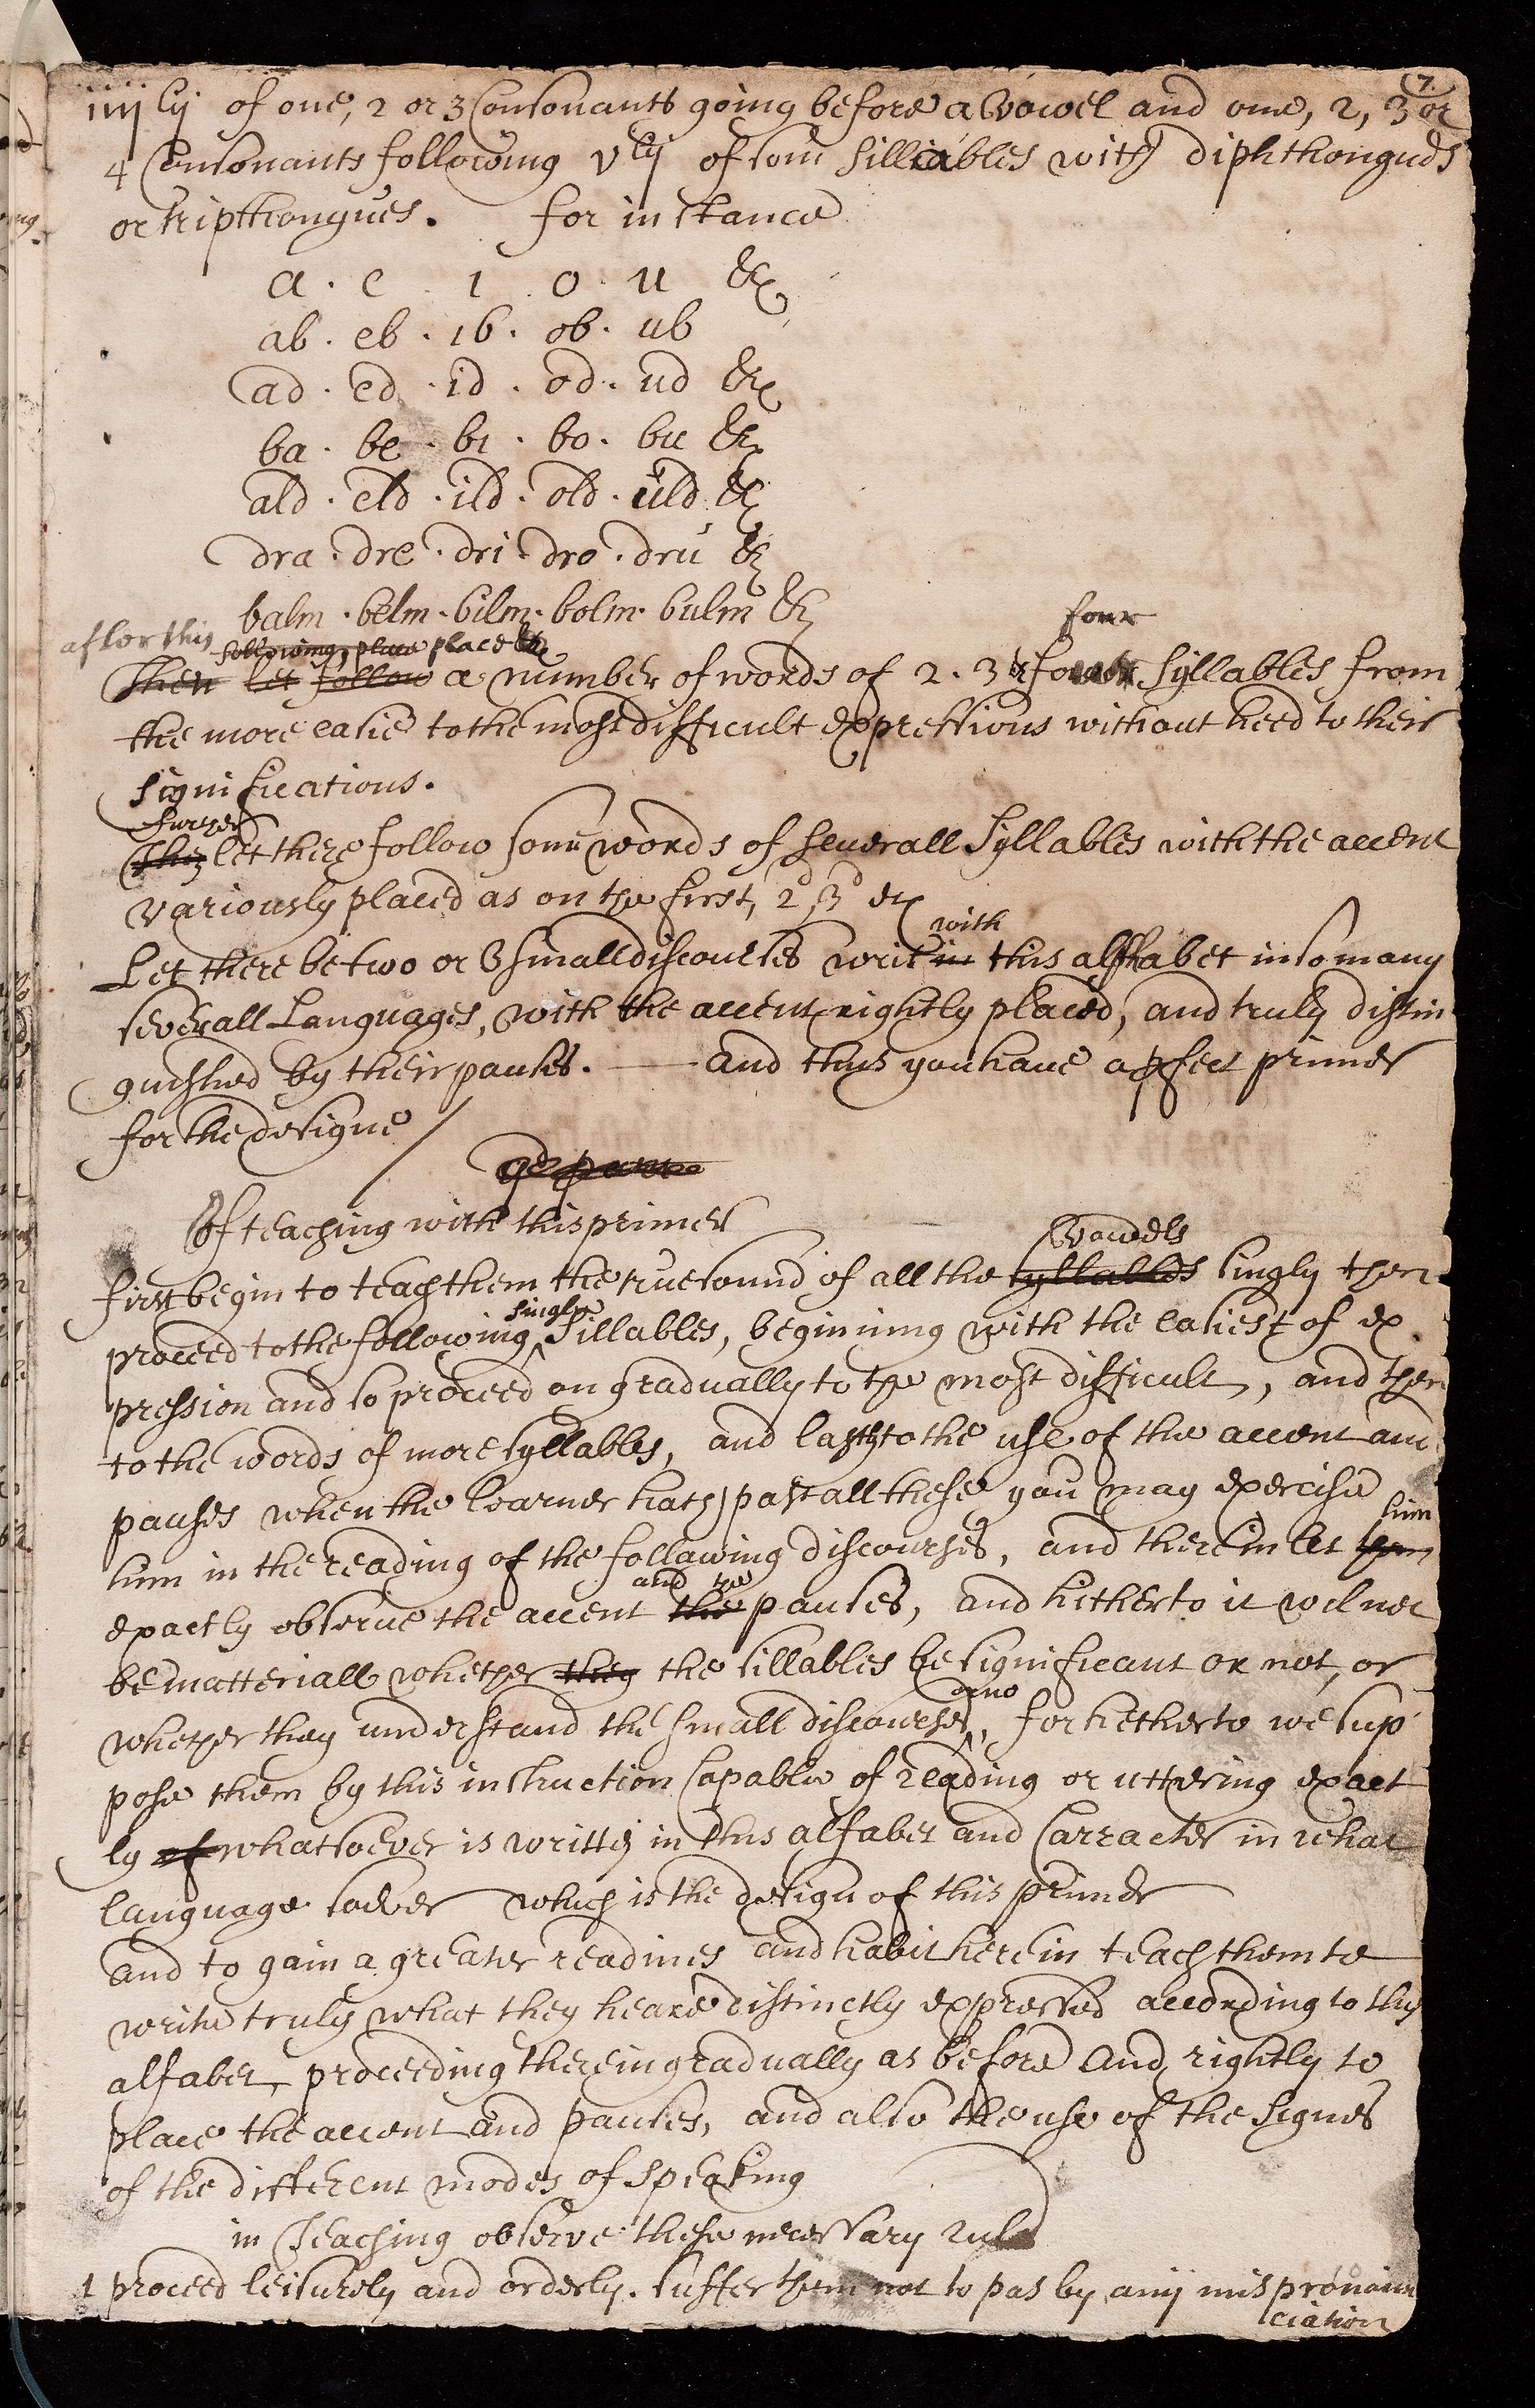 7
iiijly of one, 2 or 3 Consonants going before a Vowel and one, 2, 3 or
4 Consonants following vly of som silliables with diphthongues
or tripthongues. for instance
a . e . i . o . u &c
ab . eb . ib . ob . ub
ad . ed . id . od . ud &c
ba . be . bi . bo . bu &c
ald . eld . ild . old . uld &c
dra . dre . dri . dro . dru &c
balm . belm . bilm . bolm . bulm &c
four
after this following, place place
Then let follow a number of words of 2 . 3 or syllables from
the more easie to the most difficult expressions without heed to their
significations.
furder
let there follow some words of severall Syllables with the accent
variously placed as on the first, 2d, 3d &c
with
Let there be two or 3 small discourses writ in this alfabet in so many
severall Languages, with the accent rightly placed, and truly distin
guished by their pauses. and thus you have a pfect primer
for the designe
Of teaching with this primer
Vowels
first begin to teach them the true sound of all the syllables singly then
single
proceed to the following sillables, beginning with the easiest of ex
pression and so proceed on gradually to the most difficult, and then
to the words of more syllables, and lastly to the use of the accent and
pauses when the learner hath past all these you may exercise
him
him in the reading of the following discourses, and therein let them
and the
exactly observe the accent the pauses, and hitherto it wil not
be matteriall whether they the sillables be significant or not, or
or no
whether they understand the small discourses, for hetherto we sup
pose them by this instruction Capable of reading or uttering exact
ly of whatsoever is written in this alfabet and Carracter in what
language soever which is the design of this primer
and to gain a greater readines and habit herein teach them to
write truly what they heare distinctly expressed according to this
alfabet, proceeding therein gradually as before And rightly to
place the accent and pauses, and also the use of the signes
of the different modes of speaking
in Teaching observe these necessary rules
1 proceed leisurely and orderly. suffer them not to pas by any mispronoun
ciation